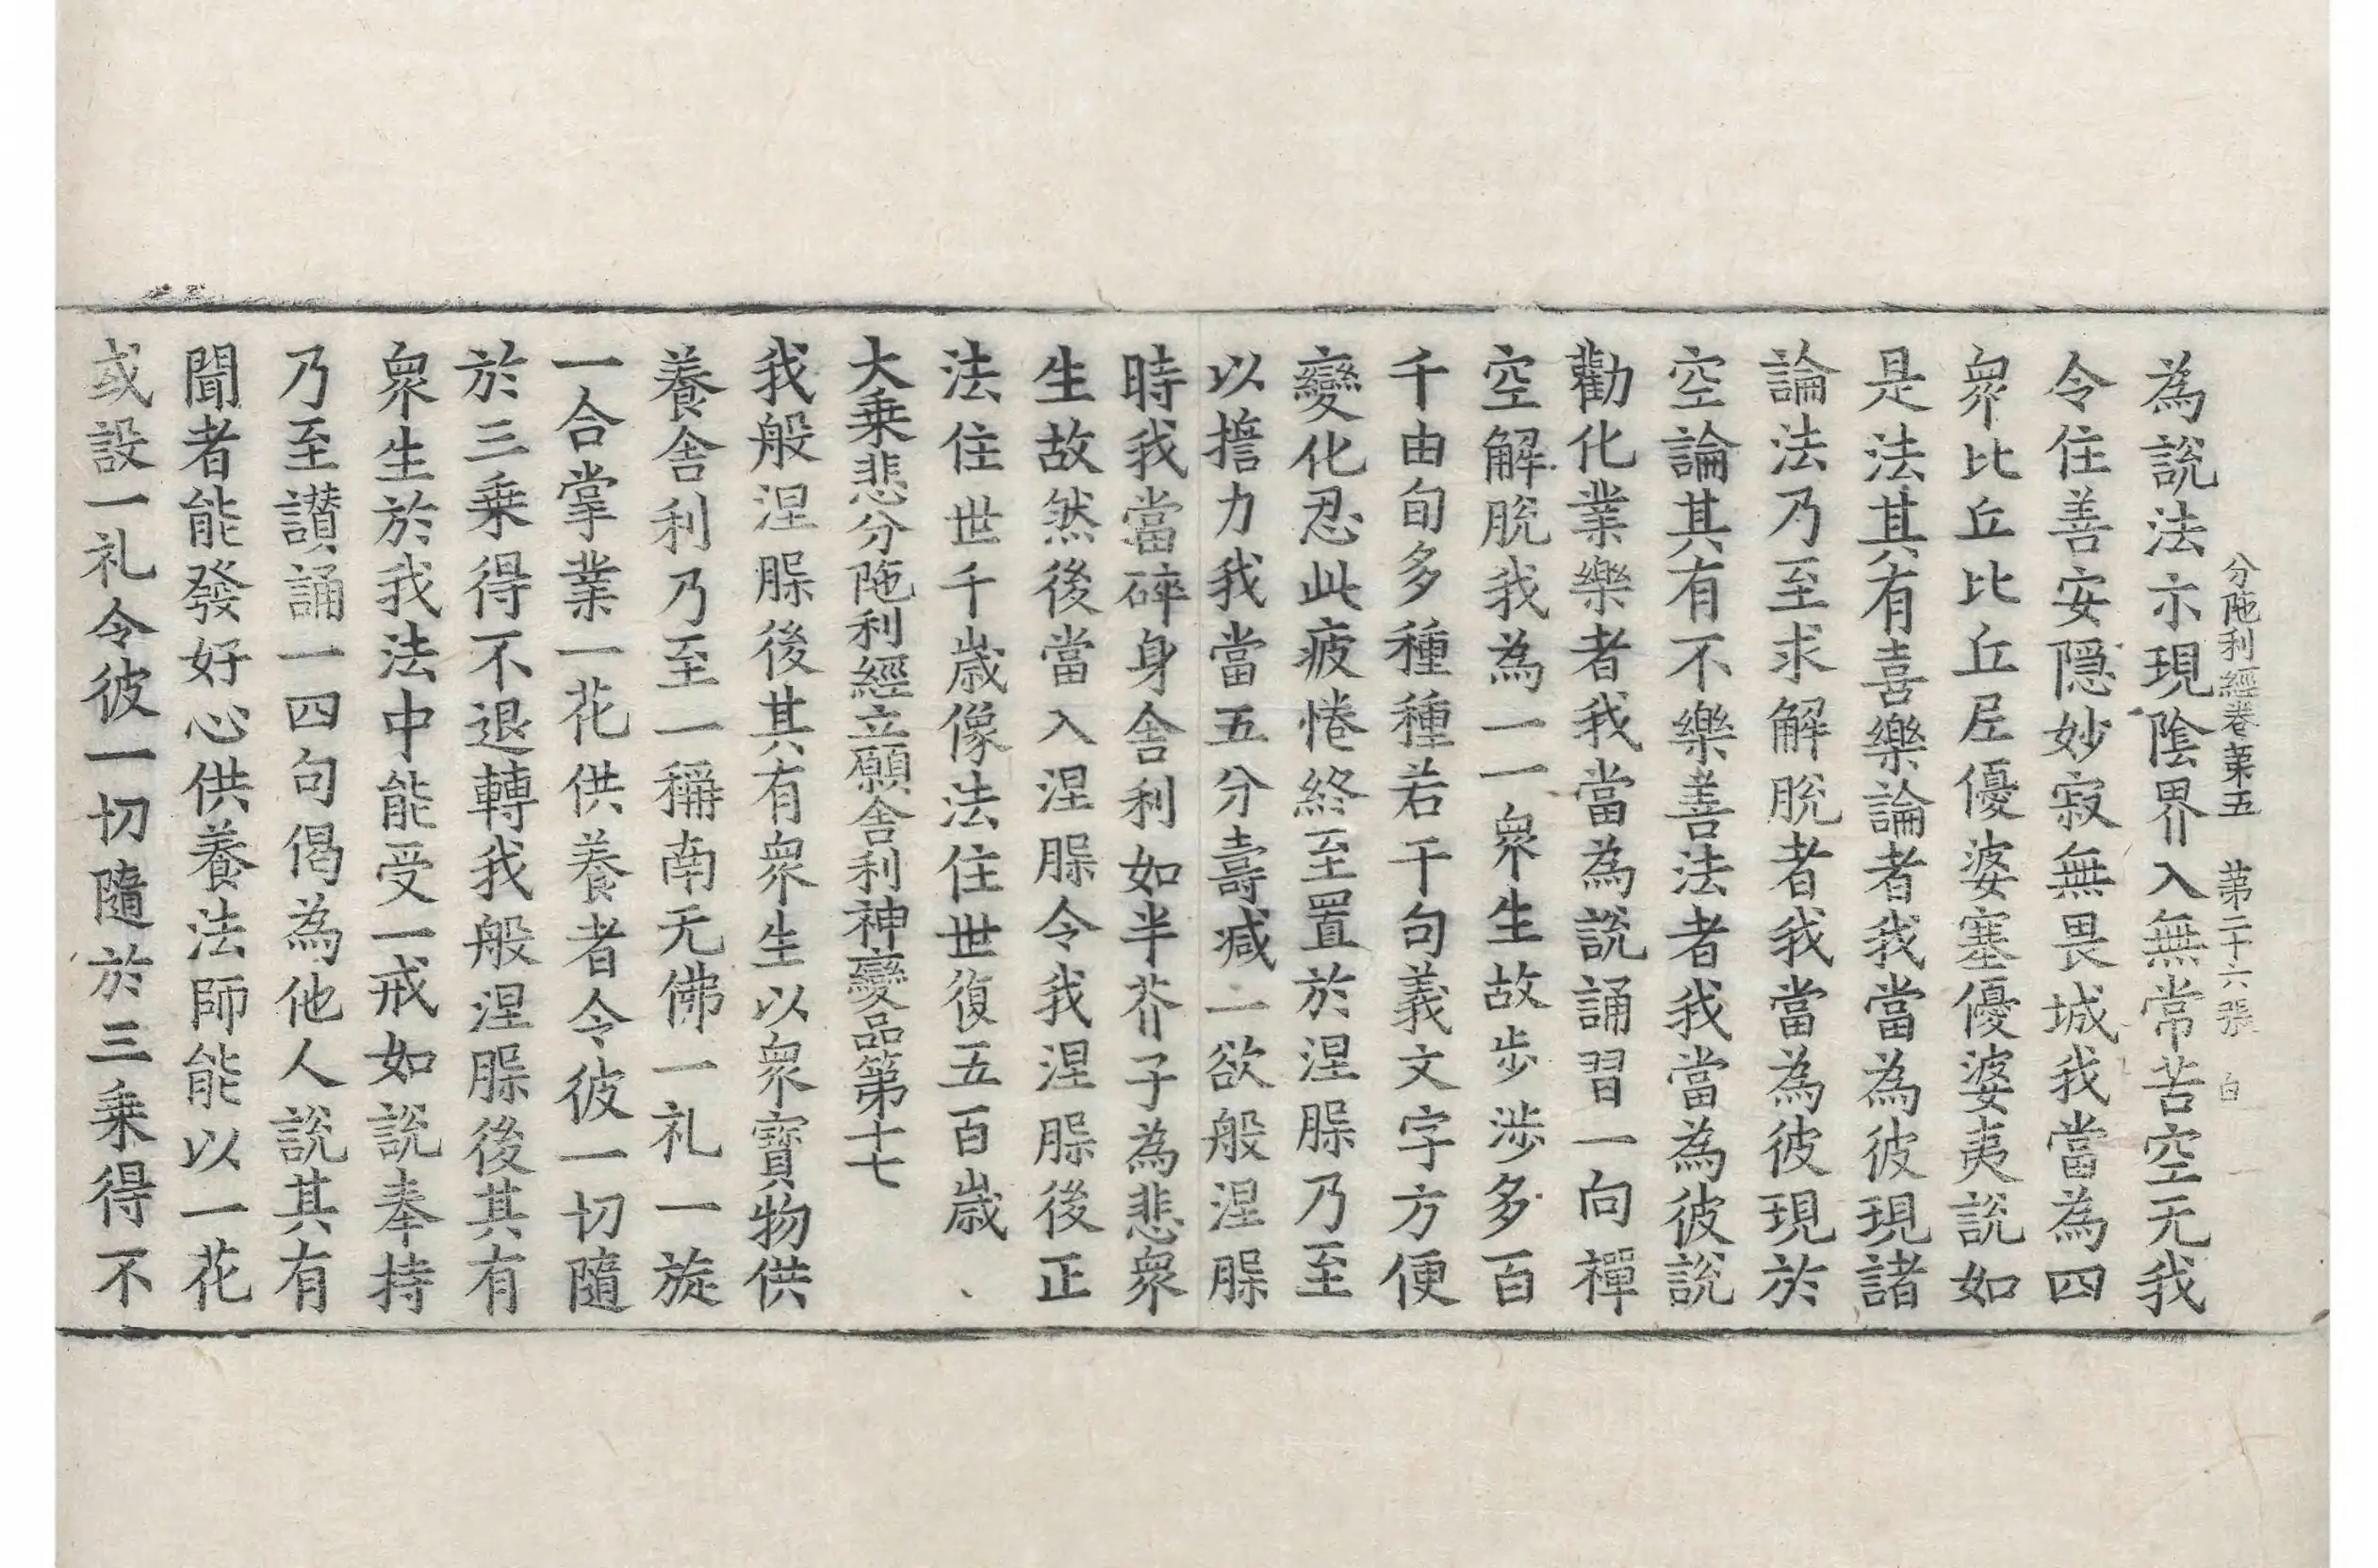 分陁利經卷第五 第二十六張 白
為說法示現陰界入無常苦空无我
令住善安隱妙寂無畏城我當為四
衆比丘比丘尼優婆塞優婆夷說如
是法其有喜樂論者我當為彼現諸
論法乃至求解脫者我當為彼現於
空論其有不樂善法者我當為彼說
勸化業樂者我當為說誦習一向禪
空解脫我為一一衆生故步涉多百
千由旬多種種若干句義文字方便
變化忍此疲惓終至置於涅槃乃至
以擔力我當五分壽減一欲般涅槃
時我當碎身舍利如半芥子為悲衆
生故然後當入涅槃令我涅槃後正
法住世千歲像法住世復五百歲
大乘悲分陁利經立願舍利神變品第十七
我般涅槃後其有衆生以衆寶物供
養舍利乃至一稱南无佛一礼一旋
一合掌業一花供養者令彼一切隨
於三乘得不退轉我般涅槃後其有
衆生於我法中能受一戒如說奉持
乃至讃誦一四句偈為他人說其有
聞者能發好心供養法師能以一花
或設一礼令彼一切隨於三乘得不